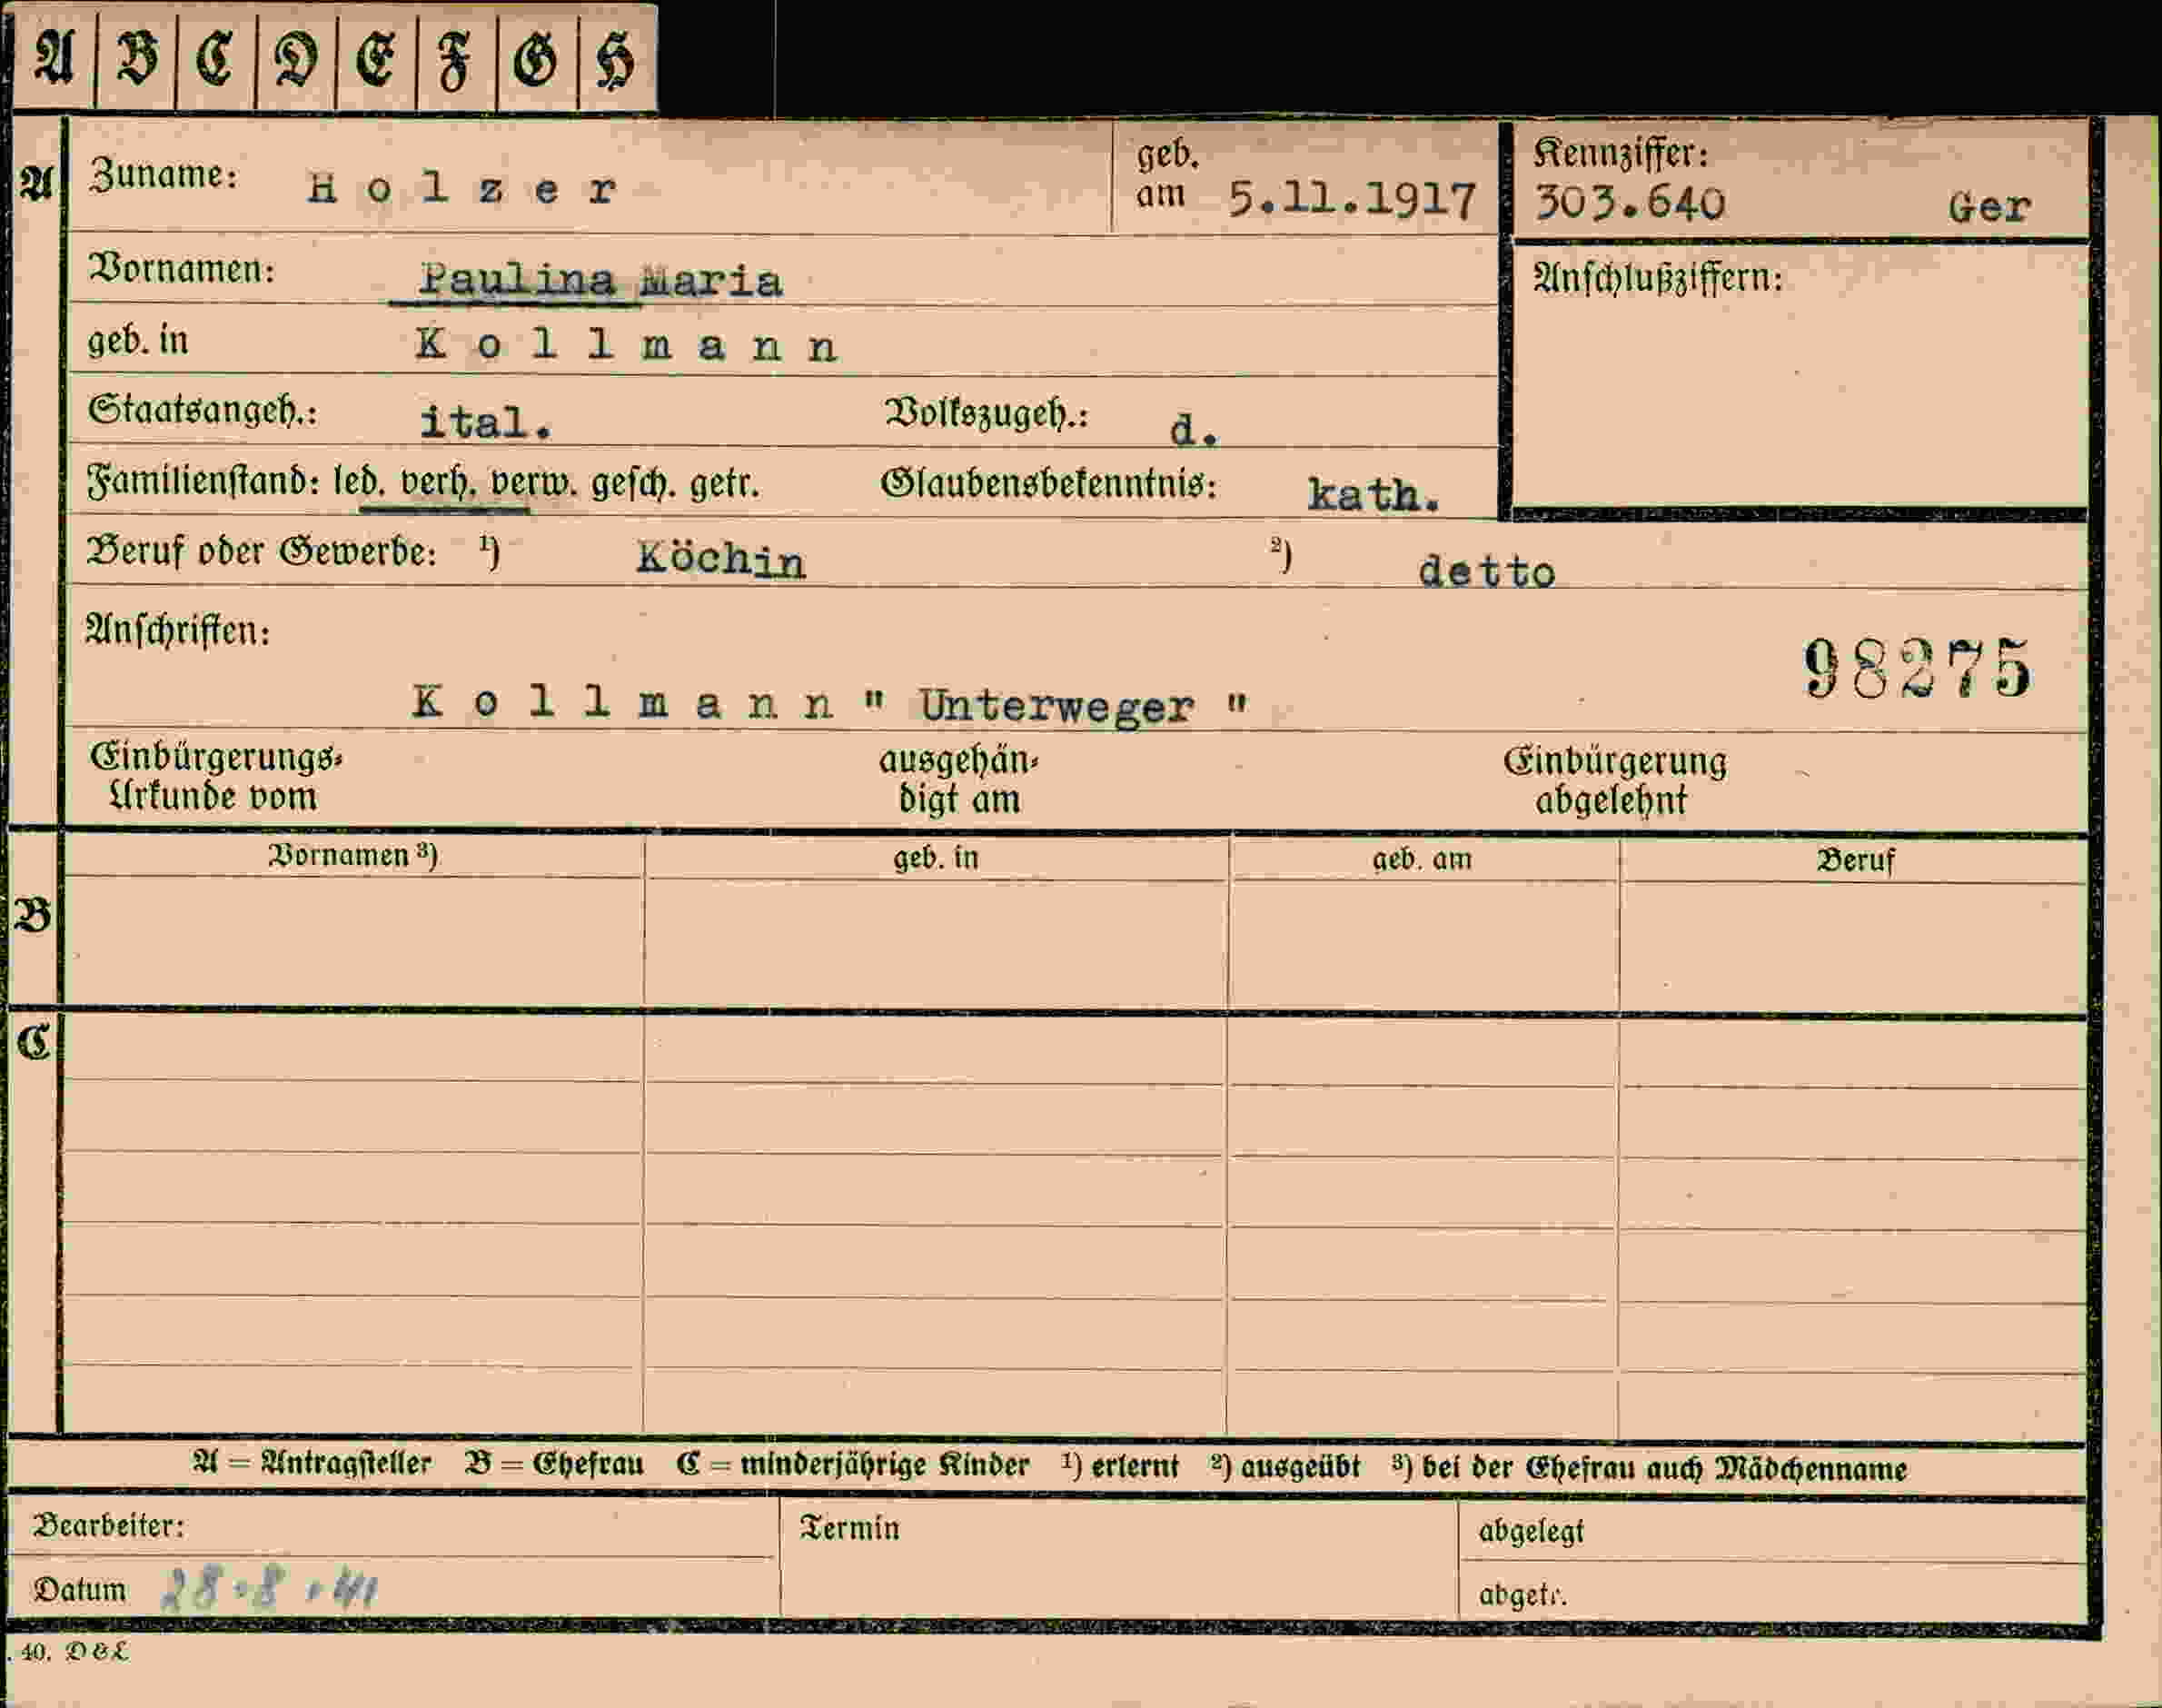 A B C D E F G H
A Zuname: Holzer geb. am 5.11.1917 Kennziffer: 303.640 Ger
Vornamen: Paulina Maria Anschlußziffern:
geb. in Kollmann
Staatsangeh.: ital. Volkszugeh.: d.
Familienstand: led. verh. verw. gesch. getr. Glaubensbekenntnis: kath.
Beruf oder Gewerbe: ¹) Köchin ²) detto
Anschriften:
98275
Kollmann " Unterweger "
Einbürgerungs- ausgehän- Einbürgerung
Urkunde vom digt am abgelehnt
Vornamen ³) geb. in geb. am Beruf
B
C
A = Antragsteller B = Ehefrau C = minderjährige Kinder ¹) erlernt ²) ausgeübt ³) bei der Ehefrau auch Mädchenname
Bearbeiter: Termin abgelegt
Datum 28.8.41 abgetr.
. 40. D&L